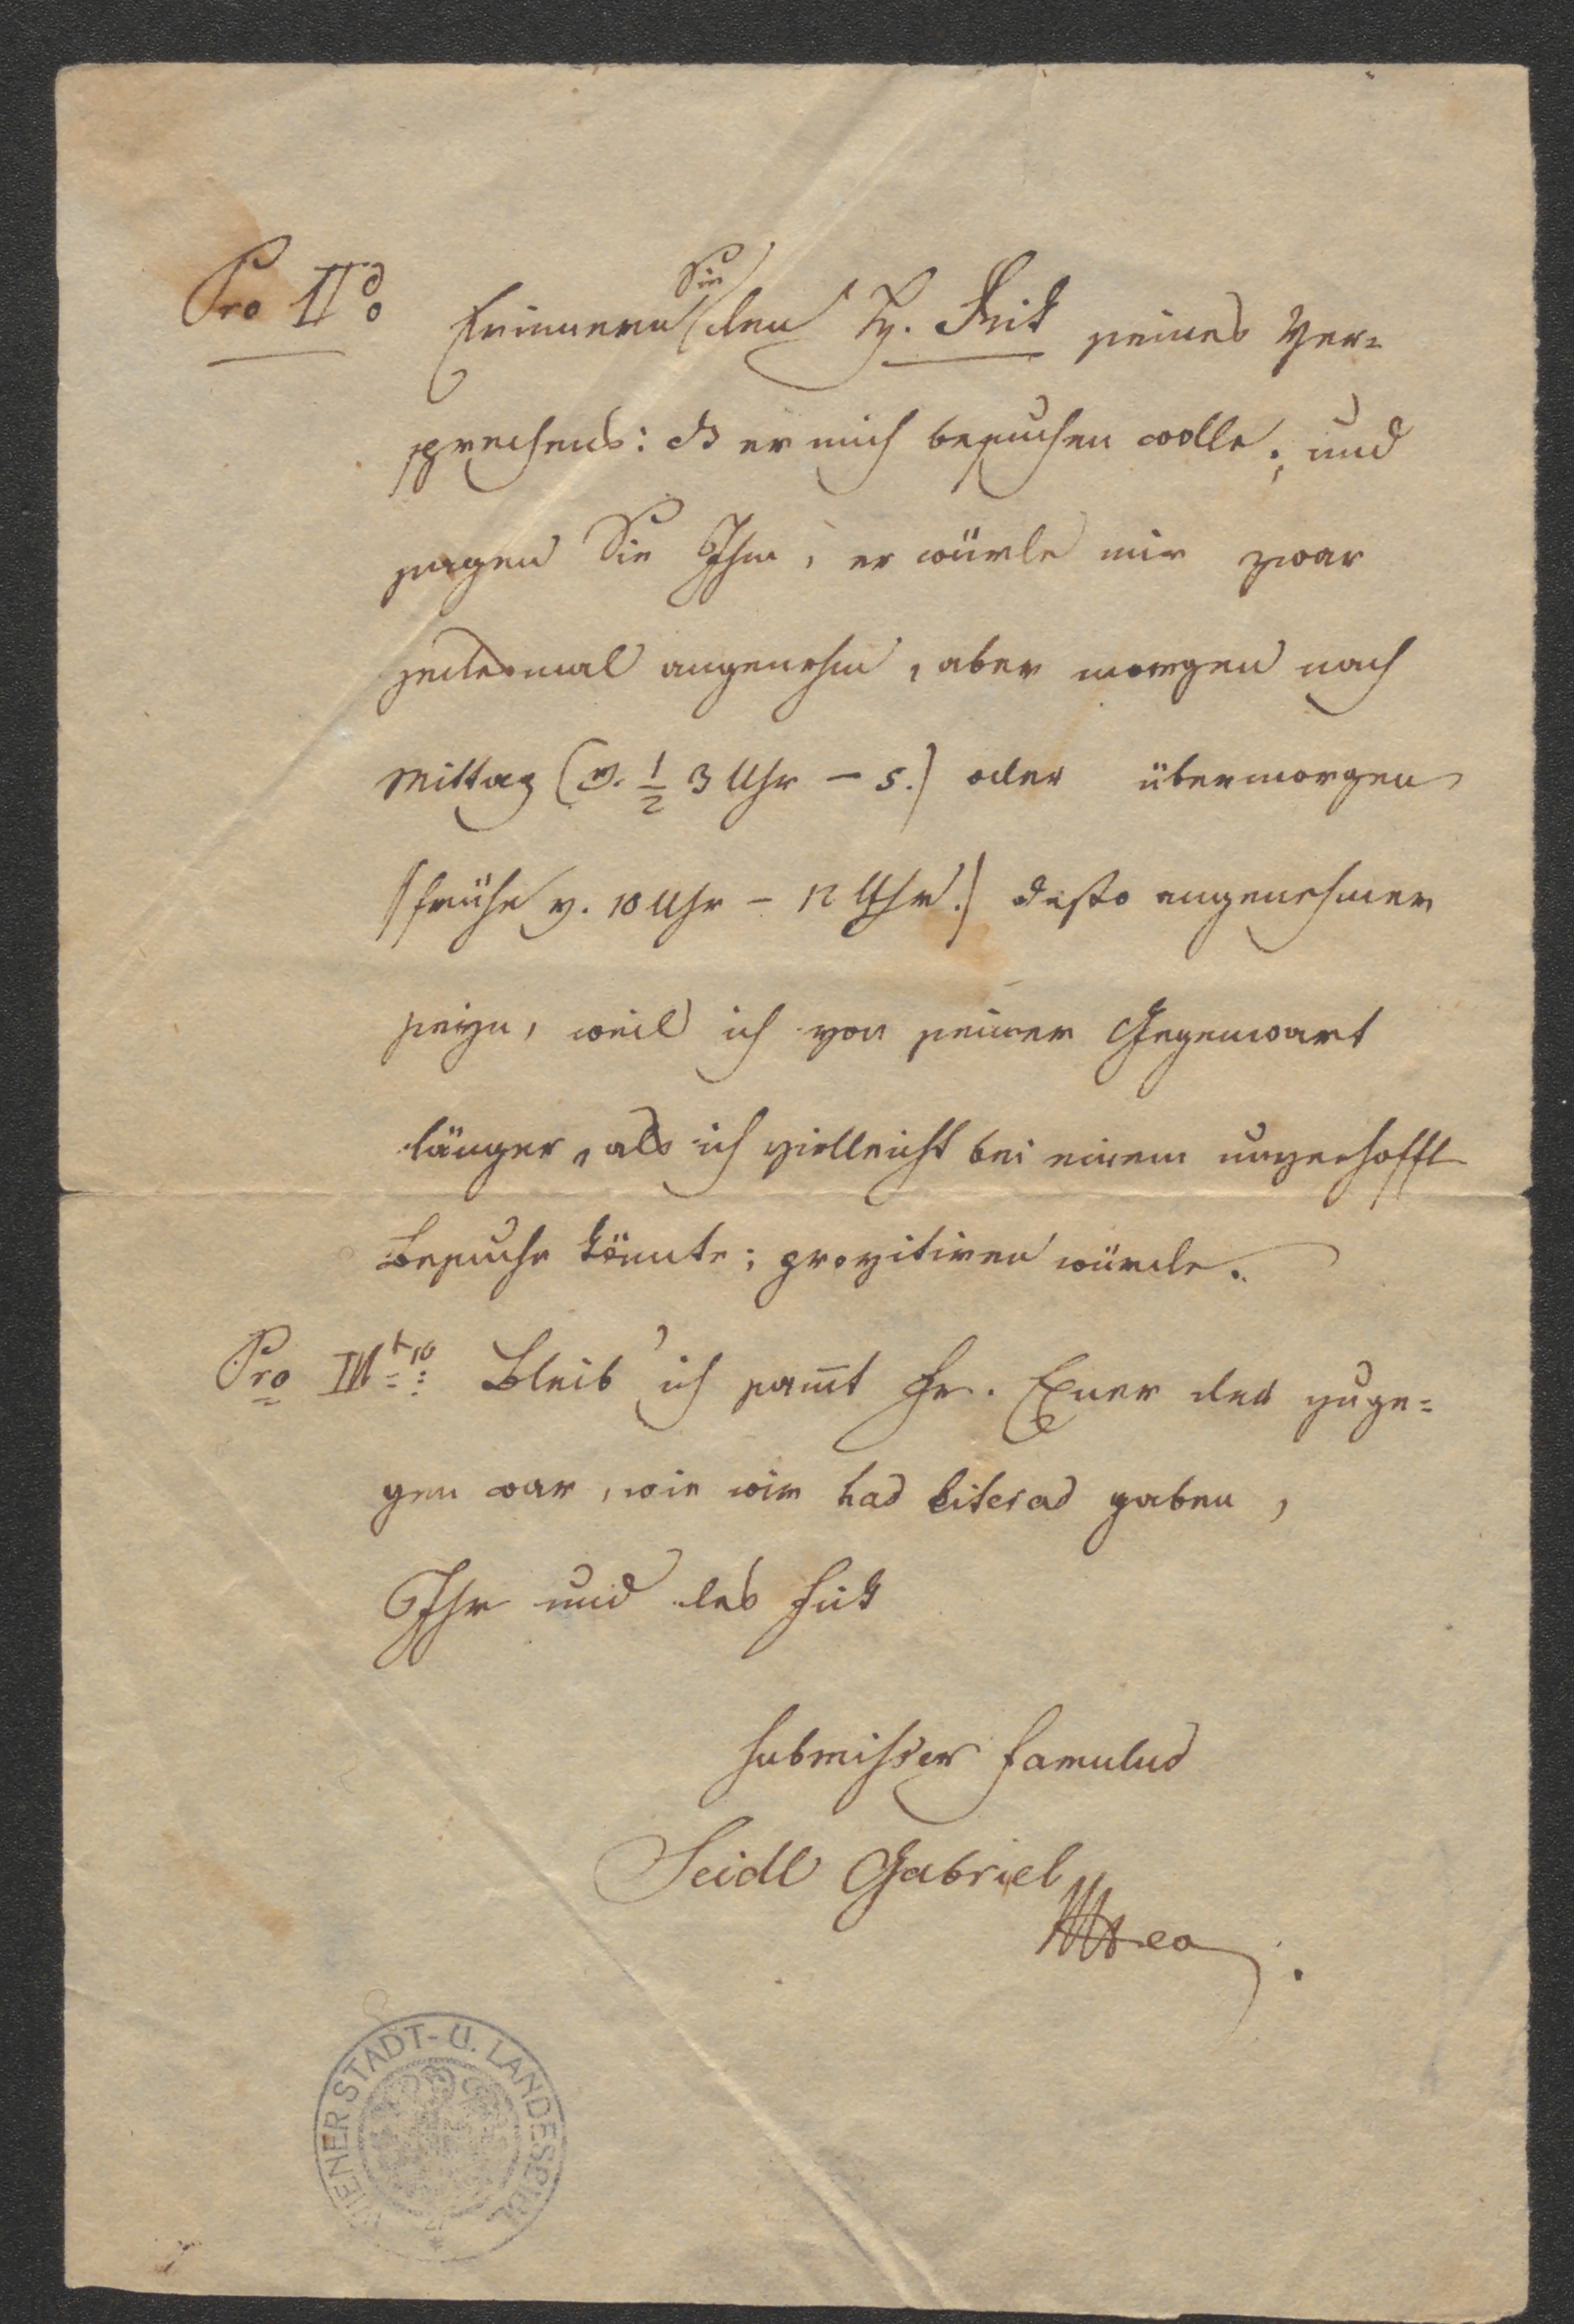 Pro IIdo Erinnern Sie den H. Frik seines Ver=
sprechens: dß er mich besuchen wolle; und
sagen Sie Ihm, er würde mir zwar
jedesmal angenehm, aber morgen nach
Mittag (v. 1/2 3 Uhr – 5.) oder übermorgen
(frühe v. 10 Uhr – 12 Uhr.) desto angenehmer
seyn, weil ich von seiner Gegenwart
länger, als ich vielleicht bei einem unverhofft
Besuche könnte; provitiren würde.
Pro IIItio Bleib' ich sam̅t Hr. Exner der zuge=
gen war, wie wir has literas gaben,
Ihr und des Frik
submißer famulus
Seidl Gabriel
WIENER STADT- U. LANDESBIBL.